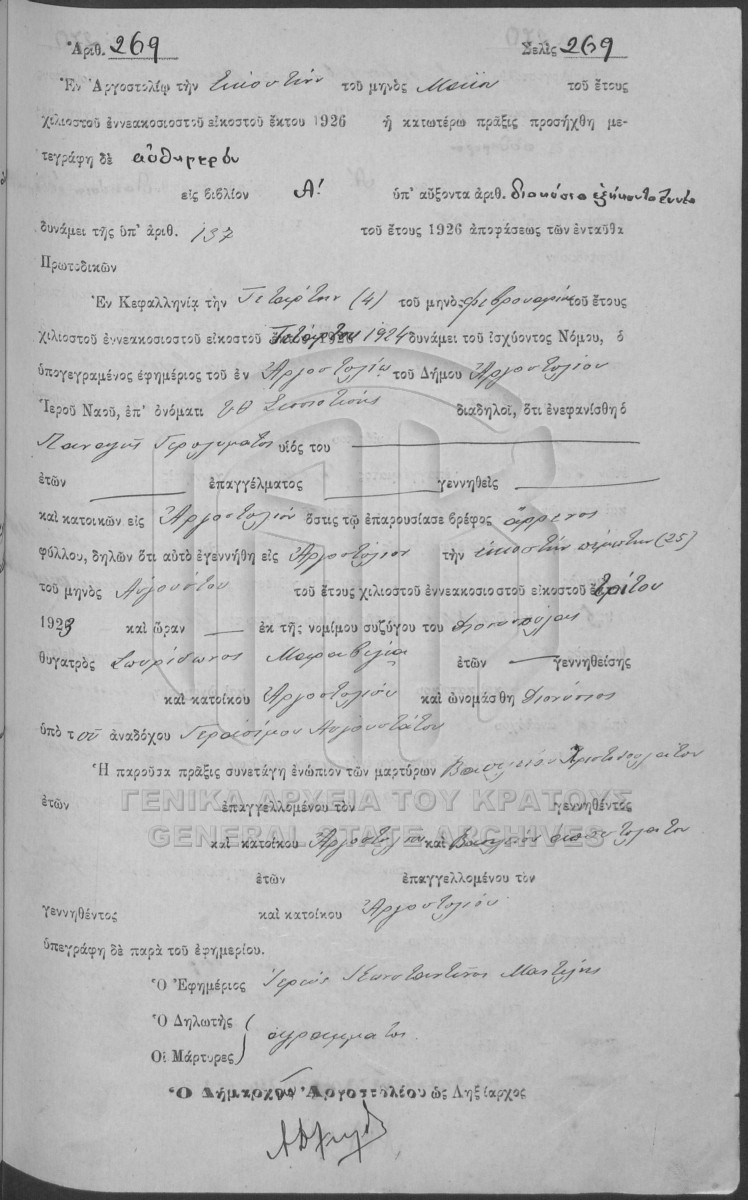 Ἀριθ. 269 Σελὶς 269
Ἐν Ἀργοστολίῳ τὴν Εἰκοστὴν τοῦ μηνὸς Μαΐου τοῦ ἔτους
χιλιοστοῦ ἐννεακοσιοστοῦ εἰκοστοῦ ἕκτου 1926 ἡ κατωτέρω πρᾶξις προσήχθη με-
τεγράφη δὲ αὐθημερόν
εἰς βιβλίον Α! ὑπ' αὔξοντα ἀριθ. διακόσια ἑξήκοντα ἐννέα
δυνάμει τῆς ὑπ' ἀριθ. 137 τοῦ ἔτους 1926 ἀποφάσεως τῶν ἐνταῦθα
Πρωτοδικῶν
Ἐν Κεφαλληνίᾳ τὴν Τετάρτην (4) τοῦ μηνὸς Φεβρουαρίου τοῦ ἔτους
χιλιοστοῦ ἐννεακοσιοστοῦ εἰκοστοῦ Τετάρτου 1924 δυνάμει τοῦ ἰσχύοντος Νόμου, ὁ
ὑπογεγραμένος ἐφημέριος τοῦ ἐν Ἀργοστολίῳ τοῦ Δήμου Ἀργοστολίου
Ἱεροῦ Ναοῦ, ἐπ' ὀνόματι διαδηλοῖ, ὅτι ἐνεφανίσθη ὁ
Παναγῆς Γερολυματος υἱός του
ἐτῶν ἐπαγγέλματος γεννηθεὶς
καὶ κατοικῶν εἰς Ἀργοστόλιον ὅστις τῷ ἐπαρουσίασε βρέφος ἄρρενος
φύλλου, δηλῶν ὅτι αὐτὸ ἐγεννήθη εἰς Ἀργοστόλιον τὴν εἰκοστὴν πέμπτην (25)
τοῦ μηνὸς Αὐγούστου τοῦ ἔτους χιλιοστοῦ ἐννεακοσιοστοῦ εἰκοστοῦ τρίτου
1923 καὶ ὥραν ἐκ τῆς νομίμου συζύγου του
θυγατρὸς Σπυρίδωνος ἐτῶν γεννηθείσης
καὶ κατοίκου Ἀργοστολίου καὶ ὠνομάσθη Διονύσιος
ὑπὸ τοῦ ἀναδόχου Γερασίμου Αὐγουστάτου
Ἡ παροῦσα πρᾶξις συνετάγη ἐνώπιον τῶν μαρτύρων Βασιλείου Χριστοδουλάτου
ΓΕΝΙΚΑ ΑΡΧΕΙΑ ΤΟΥ ΚΡΑΤΟΥΣ
ἐτῶν ἐπαγγελλομένου τὸν γεννηθέντος
GENERAL STATE ARCHIVES
καὶ κατοίκου Ἀργοστολίου καὶ Βασιλείου
ἐτῶν ἐπαγγελλομένου τὸν
γεννηθέντος καὶ κατοίκου Ἀργοστολίου
ὑπεγράφη δὲ παρὰ τοῦ ἐφημερίου.
Ὁ Ἐφημέριος Ἱερεὺς Κωνσταντῖνος
Ὁ Δηλωτὴς
ἀγράμματοι
Οἱ Μάρτυρες
Ὁ Δήμαρχος Ἀργοστολίου ὡς Ληξίαρχος